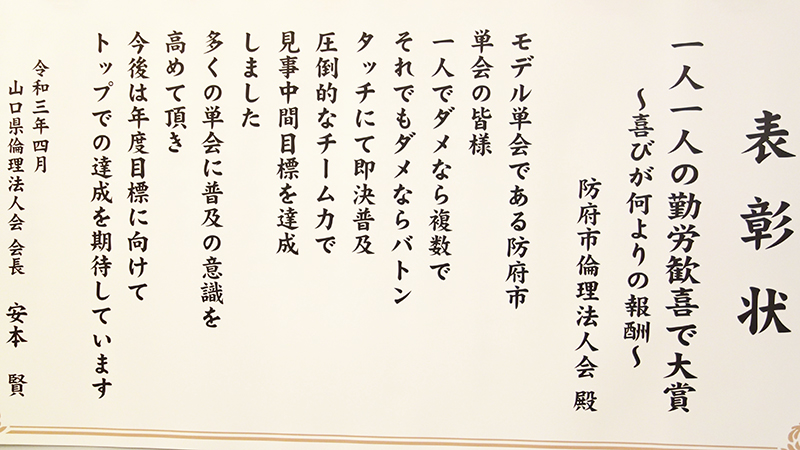 表彰状
一人一人の勤労歓喜で大賞
～喜びが何よりの報酬～
防府市倫理法人会 殿
モデル単会である防府市
単会の皆様
一人でダメなら複数で
それでもダメならバトン
タッチにて即決普及
圧倒的なチーム力で
見事中間目標を達成
しました
多くの単会に普及の意識を
高めて頂き
今後は年度目標に向けて
トップでの達成を期待しています
令和三年四月
山口県倫理法人会 会長 安本 賢